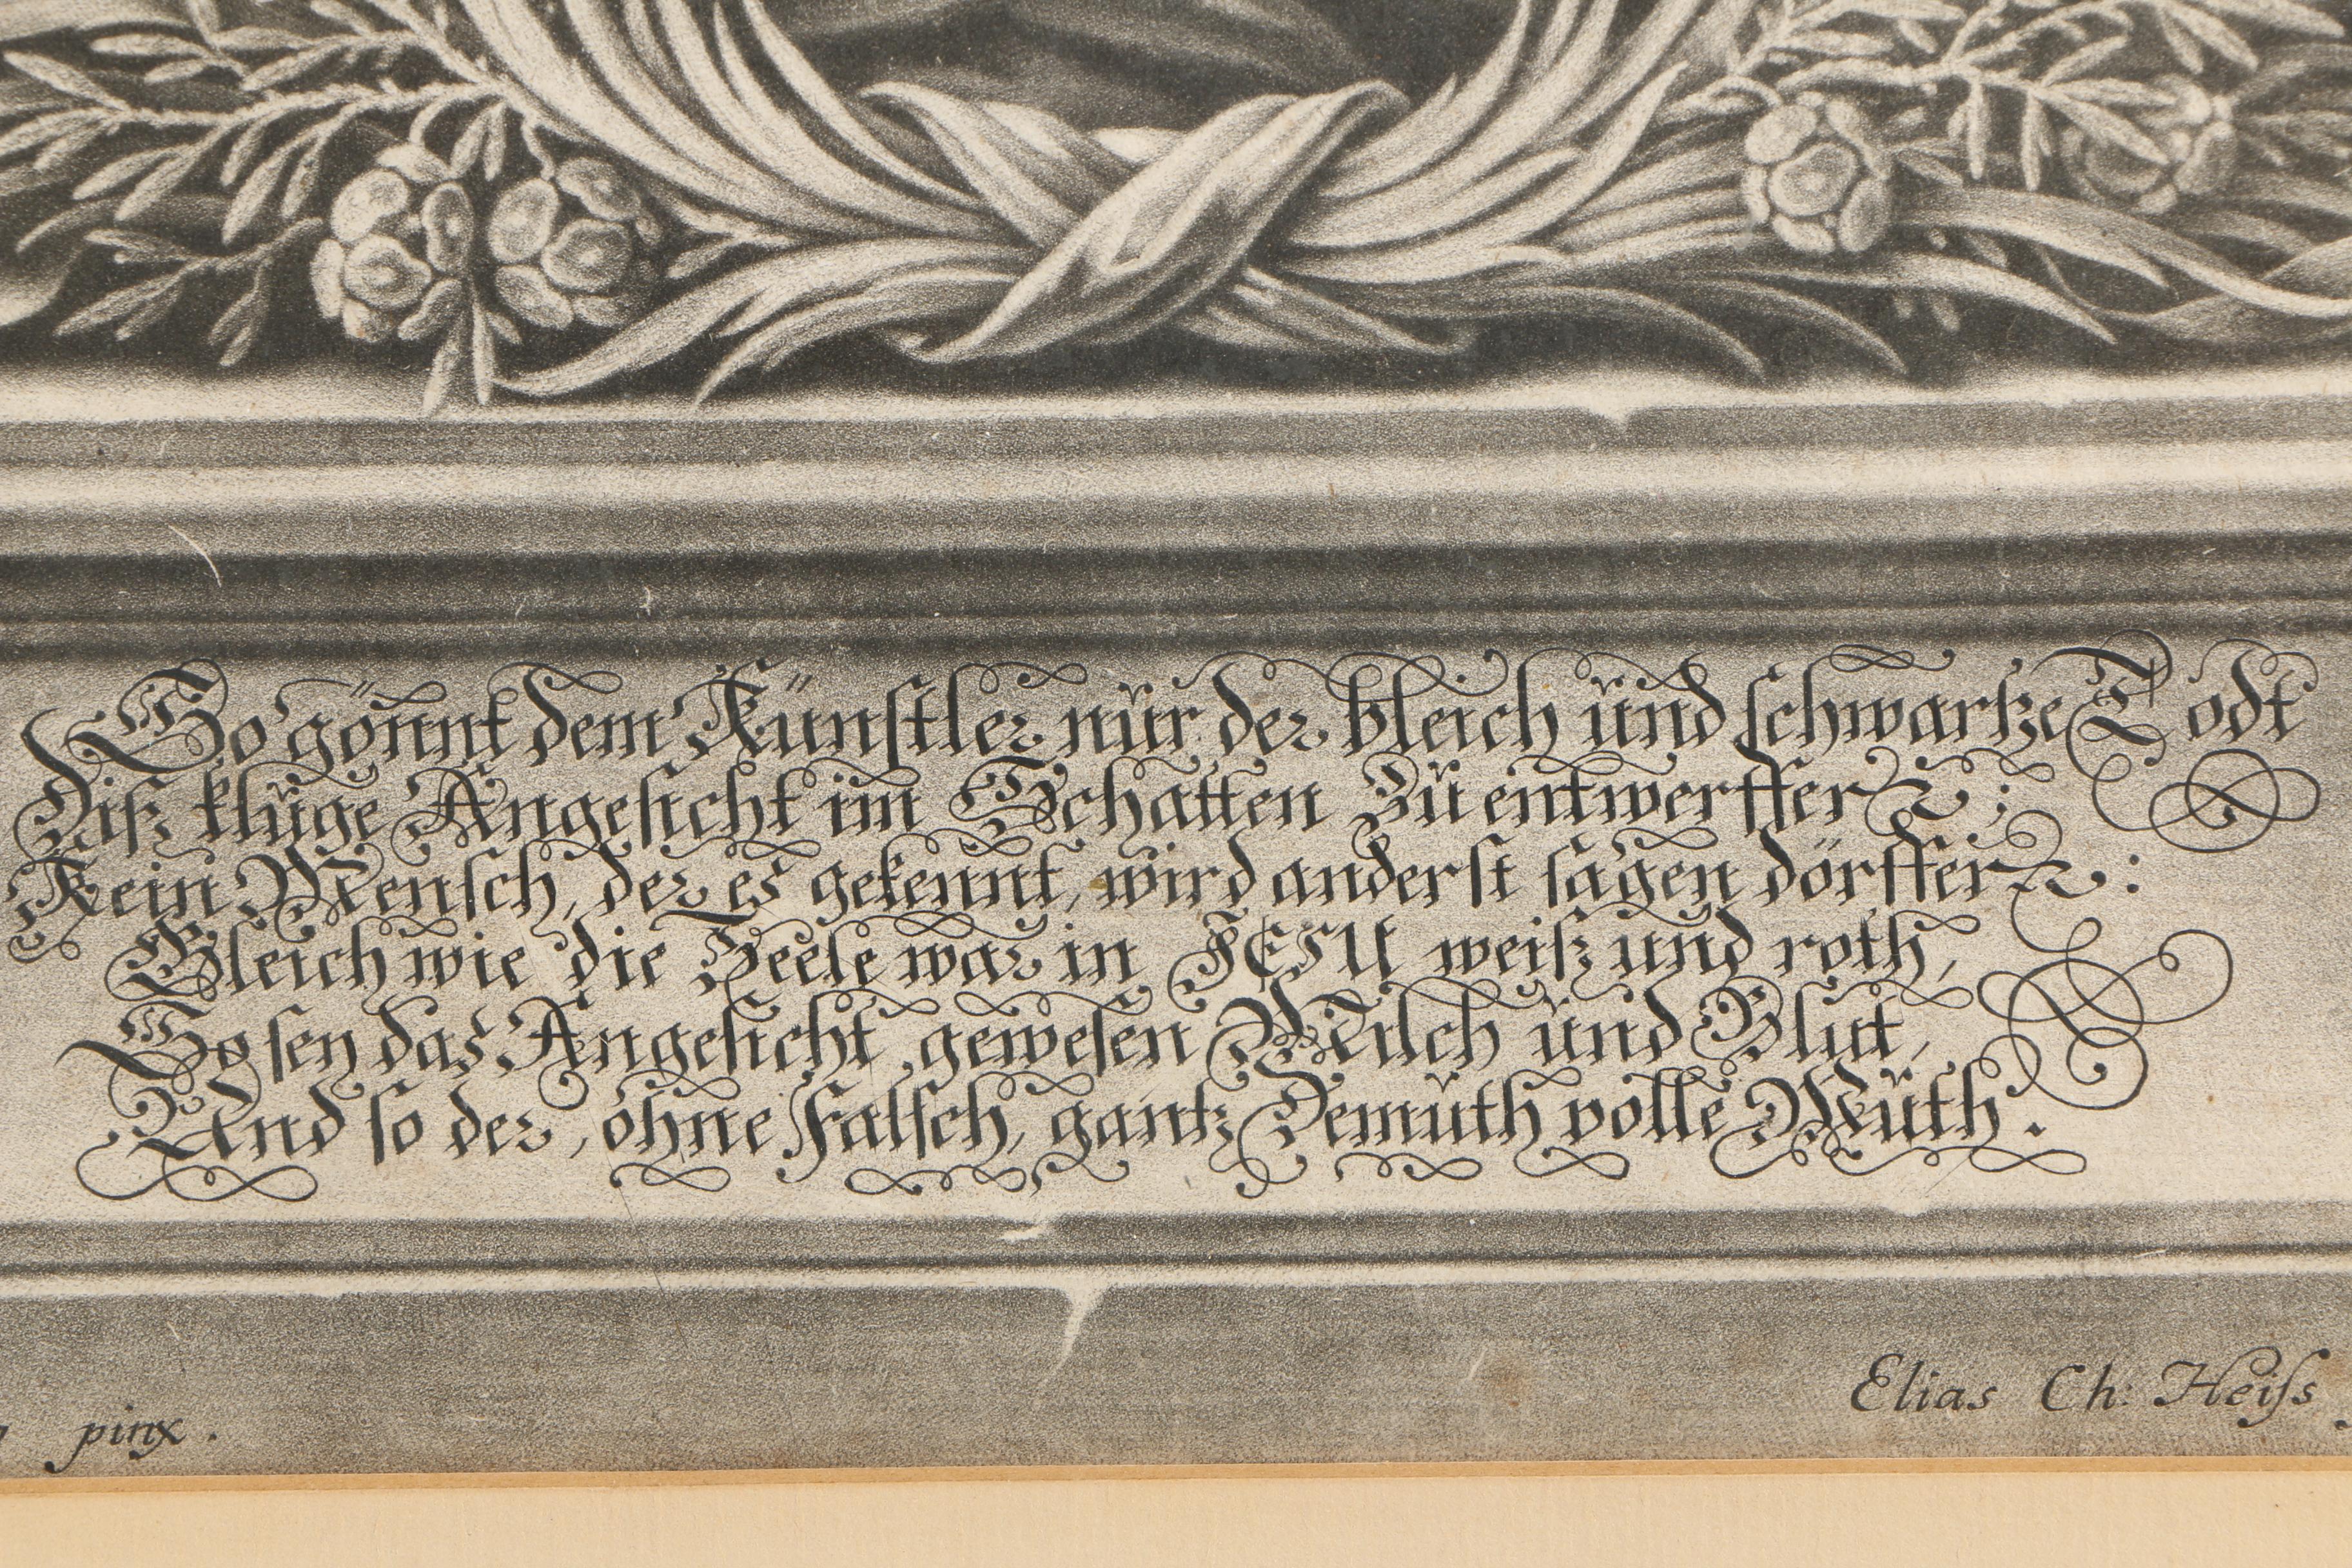 So gönnt dem Künstler nur der bleich und schwartze Todt
Diß kluge Angesicht im Schatten zu entwerffen:
Kein Mensch, der es gekennt, wird anderst sagen dörffen:
Gleich wie die Seele war in JESU weiß und roth,
So sey das Angesicht gewesen Milch und Blut,
Und so der, ohne Falsch, gantz Demuth volle Muth.
pinx.
Elias Ch: Heiſs